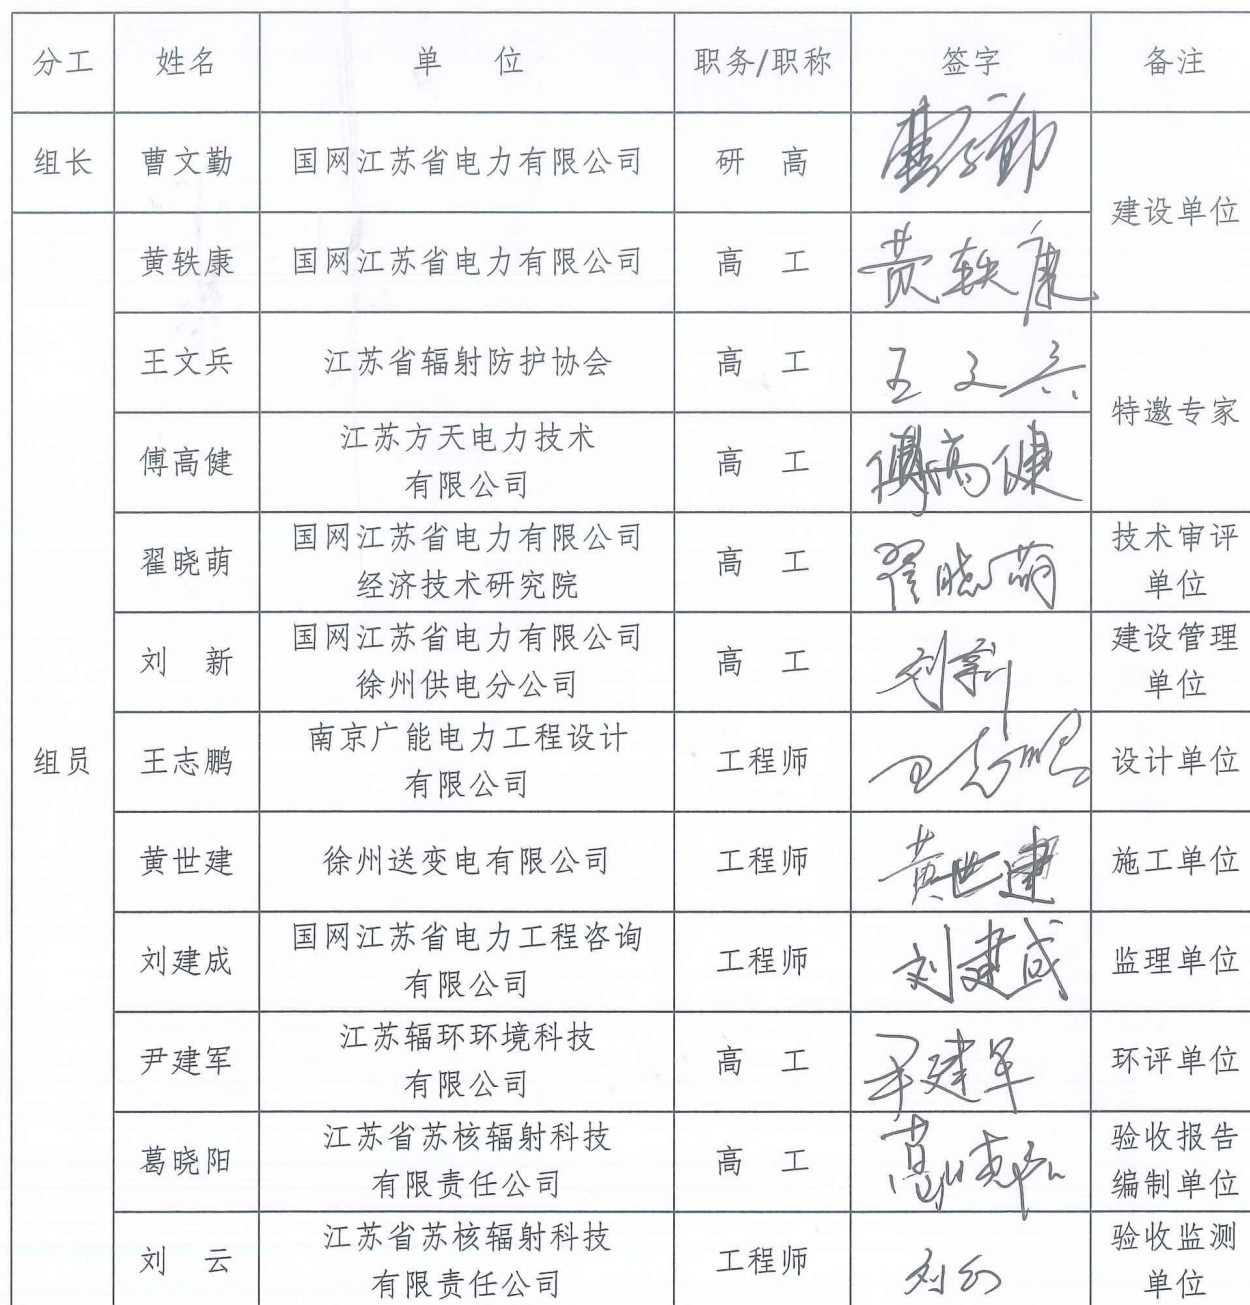 分工 姓名 单 位 职务/职称 签字 备注
组长 曹文勤 国网江苏省电力有限公司 研 高
建设单位
黄轶康 国网江苏省电力有限公司 高 工 黄轶康
王文兵 江苏省辐射防护协会 高 工 王文兵
特邀专家
傅高健 江苏方天电力技术
有限公司 高 工 傅高健
翟晓萌 国网江苏省电力有限公司
经济技术研究院 高 工 翟晓萌 技术审评
单位
刘 新 国网江苏省电力有限公司
徐州供电分公司 高 工 刘新 建设管理
单位
组员 王志鹏 南京广能电力工程设计
有限公司 工程师 王志鹏 设计单位
黄世建 徐州送变电有限公司 工程师 黄世建 施工单位
刘建成 国网江苏省电力工程咨询
有限公司 工程师 刘建成 监理单位
尹建军 江苏辐环环境科技
有限公司 高 工 尹建军 环评单位
葛晓阳 江苏省苏核辐射科技
有限责任公司 高 工 葛晓阳 验收报告
编制单位
刘 云 江苏省苏核辐射科技
有限责任公司 工程师 刘云 验收监测
单位